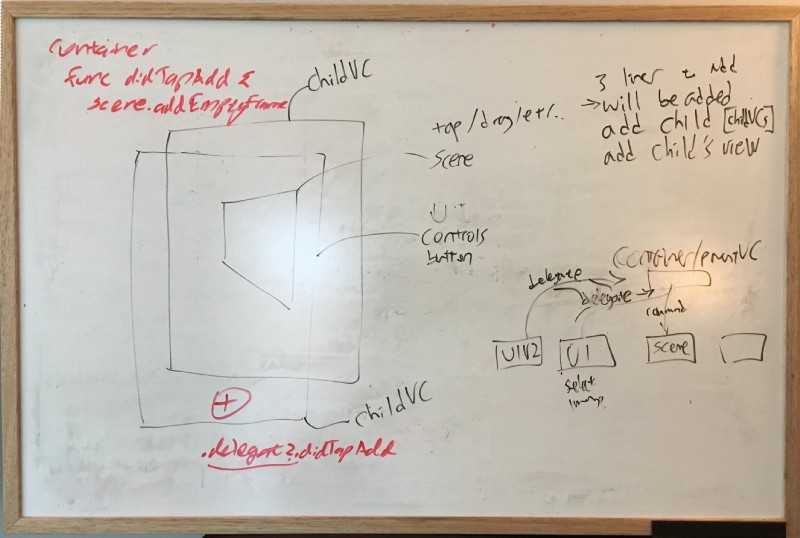 Container
func didTapAdd {
scene.addEmptyFrame
childVC
tap/drag/etc..
Scene
UI
Controls
button
3 lines to add
→ will be added
add child [childVCs]
add child's view
Container/parentVC
delegate
delegate
command
UIV2
UI
scene
select
+
childVC
.delegate?.didTapAdd